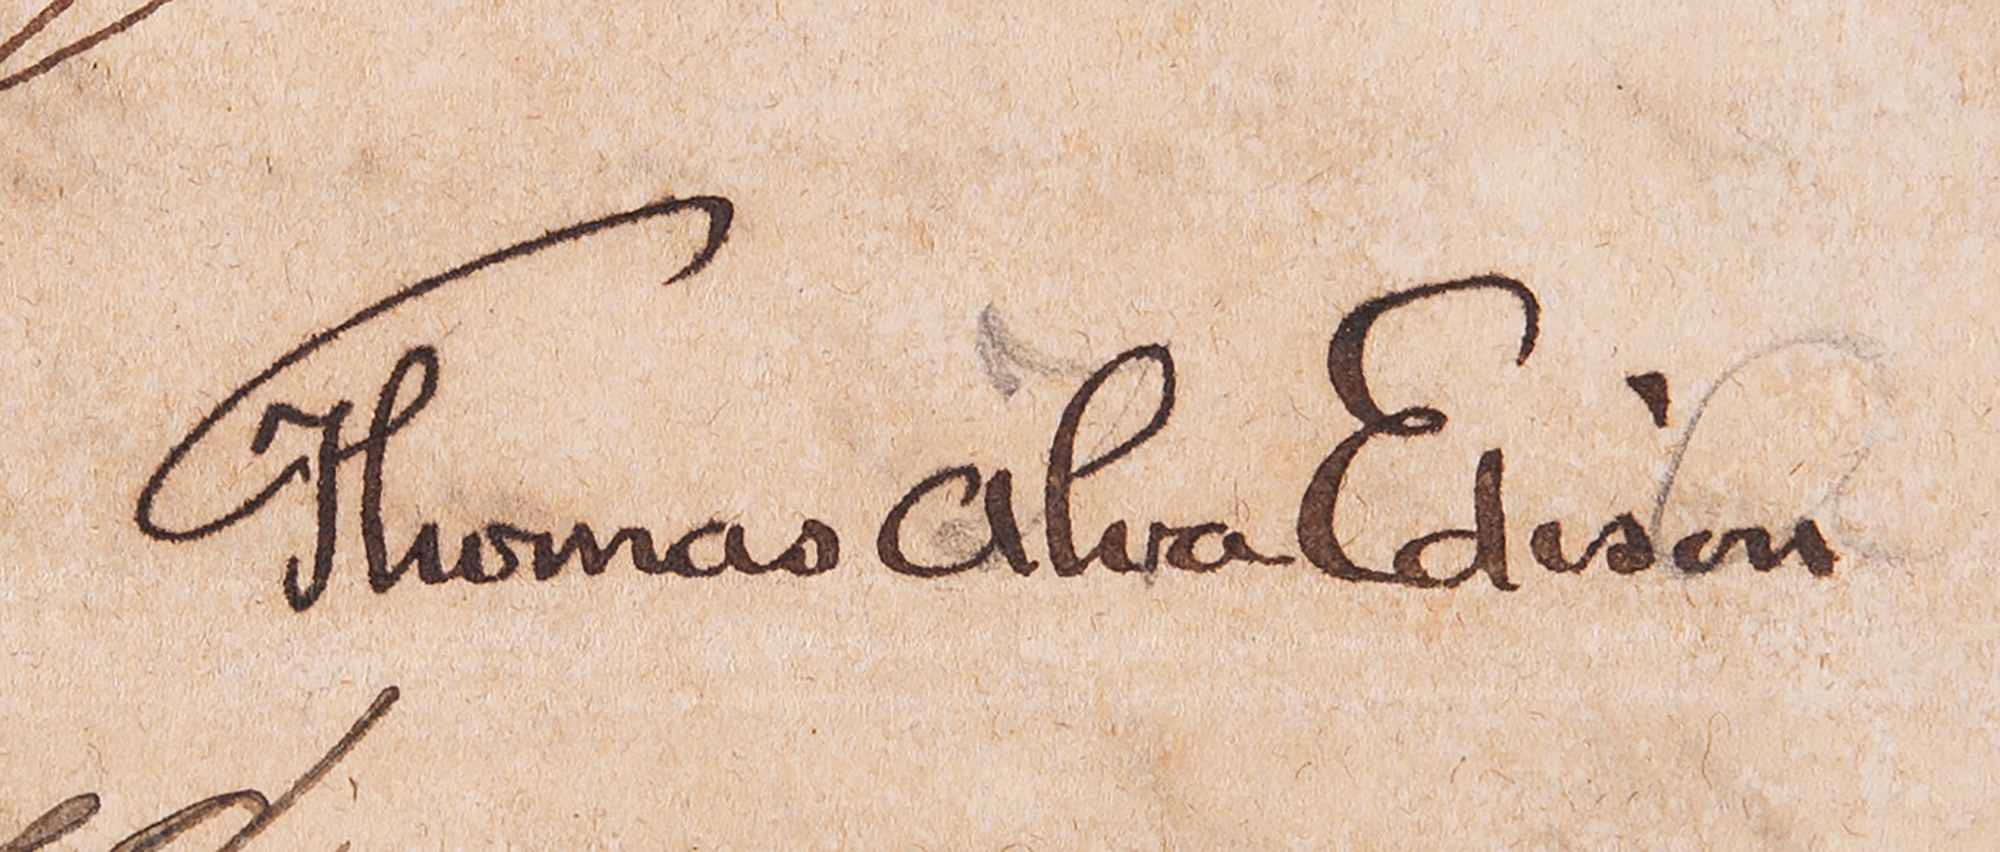 Thomas Alva Edison